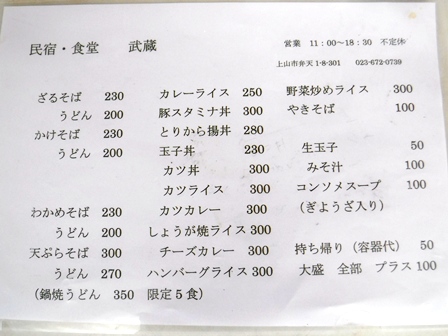 民宿・食堂　武蔵
営業　11：00～18：30　不定休
上山市弁天1-8-301　023-672-0739
ざるそば　230
うどん　200
かけそば　230
うどん　200
わかめそば　230
うどん　200
天ぷらそば　300
うどん　270
（鍋焼うどん　350　限定5食）
カレーライス　250
豚スタミナ丼　300
とりから揚丼　280
玉子丼　230
カツ丼　300
カツライス　300
カツカレー　300
しょうが焼ライス300
チーズカレー　300
ハンバーグライス300
野菜炒めライス　300
やきそば　100
生玉子　50
みそ汁　100
コンソメスープ　100
（ぎようざ入り）
持ち帰り（容器代）　50
大盛　全部　プラス　100